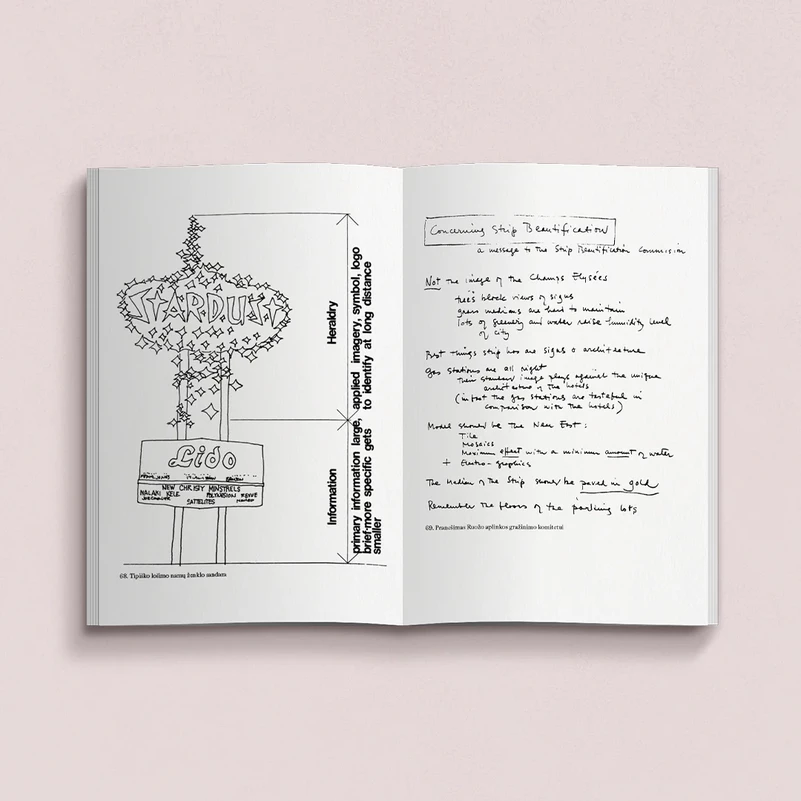 STARDUST
Lido
NEW CHRISTY MINSTRELS
MALAKI KELE
SATELLITES
Heraldry
applied imagery, symbol, logo
to identify at long distance
Information
primary information large,
brief-more specific gets
smaller
68. Tipiško lošimo namų ženklo sandara
Concerning Strip Beautification
a message to the Strip Beautification Commission
Not the image of the Champs Elysées
trees block views of signs
grass medians are hard to maintain
lots of greenery and water raise humidity level
of city
Best things strip has are signs & architecture
Gas stations are all right
their standard image plays against the unique
architecture of the hotels
(in fact the gas stations are tasteful in
comparison with the hotels)
Model should be the Near East:
Tile
Mosaics
Maximum effect with a minimum amount of water
+ Electro-graphics
The Median of the Strip should be paved in gold
Remember the floors of the parking lots
69. Pranešimas Ruožo aplinkos gražinimo komitetui